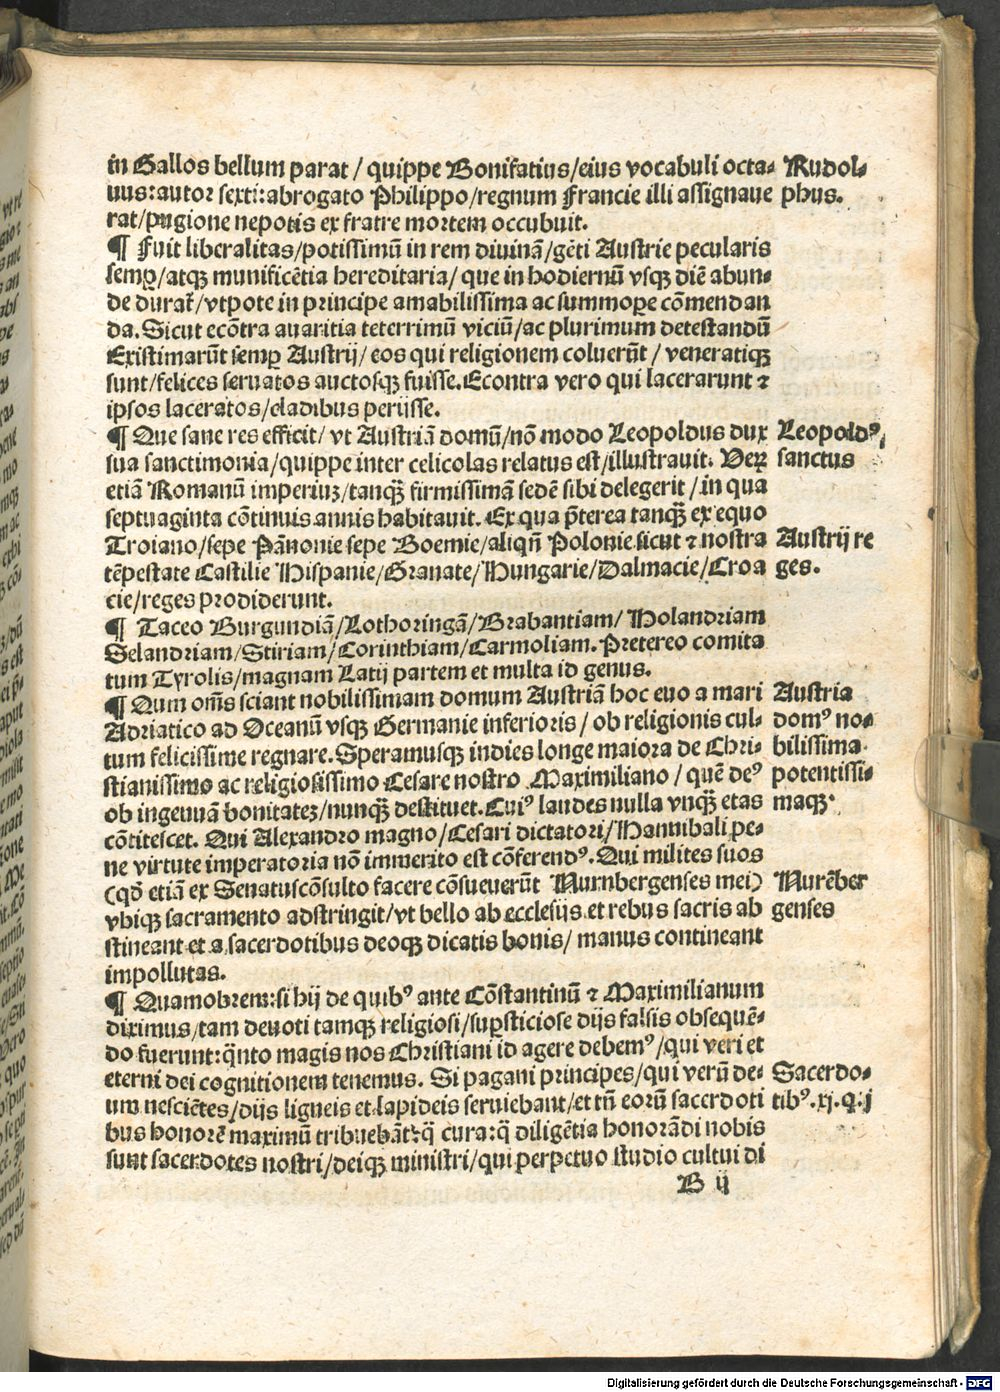 in Gallos bellum parat / quippe Bonifatius/eius vocabuli octa-
uus:autor sexti:abrogato Philippo/regnum Francie illi assignaue
rat/pugione nepotis ex fratre mortem occubuit.
Rudol-
phus.
¶ Fuit liberalitas/potissimū in rem diuinā/gēti Austrie pecularis
semꝑ/atqꝫ munificētia hereditaria/ que in hodiernū vsqꝫ diē abun-
de durat̄/vtpote in principe amabilissima ac summoꝑe cōmendan
da. Sicut ecōtra auaritia teterrimū viciū/ac plurimum detestandū
Existimarūt semꝑ Austrij/eos qui religionem coluerūt/veneratiqꝫ
sunt/felices seruatos auctosqꝫ fuisse. Econtra vero qui lacerarunt ⁊
ipsos laceratos/cladibus perijsse.
¶ Que sane res efficit/ vt Austriā domū/nō modo Leopoldus dux
sua sanctimonia/quippe inter celicolas relatus est/illustrauit. Veꝝ
etiā Romanū imperiuꝫ/tanqꝫ̄ firmissimā sedē sibi delegerit/in qua
septuaginta cōtinuis annis habitauit. Ex qua p̄terea tanqꝫ̄ ex equo
Troiano/sepe Pānonie sepe Boemie/aliqn̄ Polonie sicut ⁊ nostra
tēpestate Castilie Hispanie/Granate/Hungarie/Dalmacie/Croa
cie/reges prodiderunt.
Leopoldꝰ
sanctus
Austrij re
ges.
¶ Taceo Burgundiā/Lothoringā/Brabantiam/Holandriam
Selandriam/Stiriam/Corinthiam/Carmoliam. Pretereo comita
tum Tyrolis/magnam Latij partem et multa id genus.
¶ Qum om̄s sciant nobilissimam domum Austriā hoc euo a mari
Adriatico ad Oceanū vsqꝫ Germanie inferioris/ob religionis cul-
tum felicissime regnare. Speramusqꝫ indies longe maiora de Chri-
stianissimo ac religiosissimo Cesare nostro Maximiliano/quē deꝰ
ob ingenuam bonitateꝫ/nunqꝫ̄ destituet. Cuiꝰ laudes nulla vnqꝫ̄ etas
cōtitescet. Qui Alexandro magno/Cesari dictatori/Hannibali pe-
ne virtute imperatoria nō immerito est cōferendꝰ. Qui milites suos
(qd̄ etiā ex Senatuscōsulto facere cōsueuerūt Nurnbergenses mei)
vbiqꝫ sacramento adstringit/vt bello ab ecclesijs et rebus sacris ab
stineant et a sacerdotibus deoqꝫ dicatis bonis/ manus contineant
impollutas.
Austria
domꝰ no-
bilissima
potentissi-
maqꝫ.
Nurēber
genses
¶ Quamobrem:si hij de quibꝰ ante Cōstantinū ⁊ Maximilianum
diximus/tam deuoti tamqꝫ religiosi/suꝑsticiose dijs falsis obsequē-
do fuerunt:q̄nto magis nos Christiani id agere debemꝰ/qui veri et
eterni dei cognitionem tenemus. Si pagani principes/qui verū de-
um nesciētes/dijs ligneis et lapideis seruiebant/et tn̄ eorū sacerdoti
bus honorē maximū tribuebāt:q̄ cura:q̄ diligētia honorādi nobis
sunt sacerdotes nostri/deiqꝫ ministri/qui perpetuo studio cultui di
Sacerdo-
tibꝰ.xj.q.j
B ij
Digitalisierung gefördert durch die Deutsche Forschungsgemeinschaft - DFG